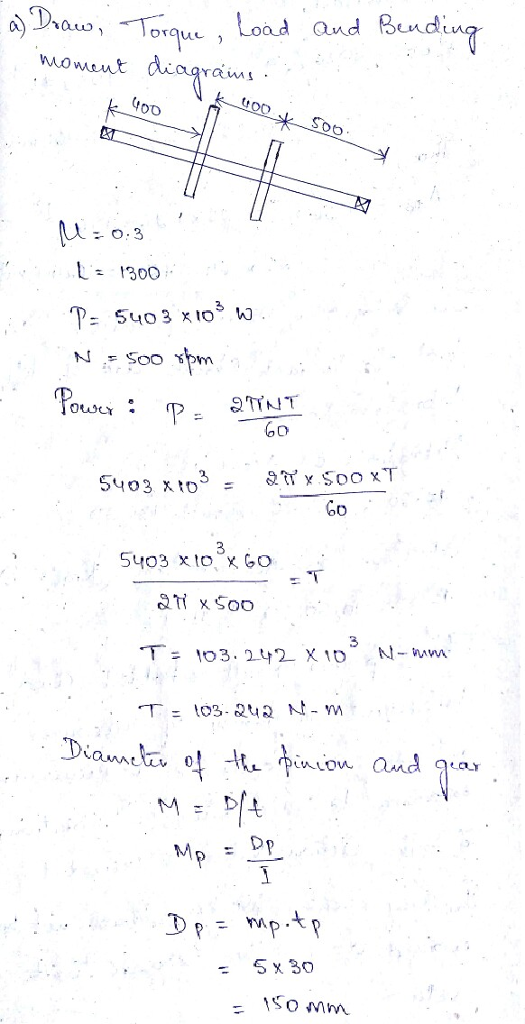 a) Draw, Torque, Load and Bending
moment diagrams.
400
400
500
μ = 0.3
L = 1300
P = 5403 x 10³ W.
N = 500 rpm
Power : P = 2πNT / 60
5403 x 10³ = 2π x 500 x T / 60
5403 x 10³ x 60 / 2π x 500 = T
T = 103.242 x 10³ N-mm
T = 103.242 N-m
Diameter of the pinion and gear
M = D/t
Mp = Dp / I
Dp = mp.tp
= 5 x 30
= 150 mm